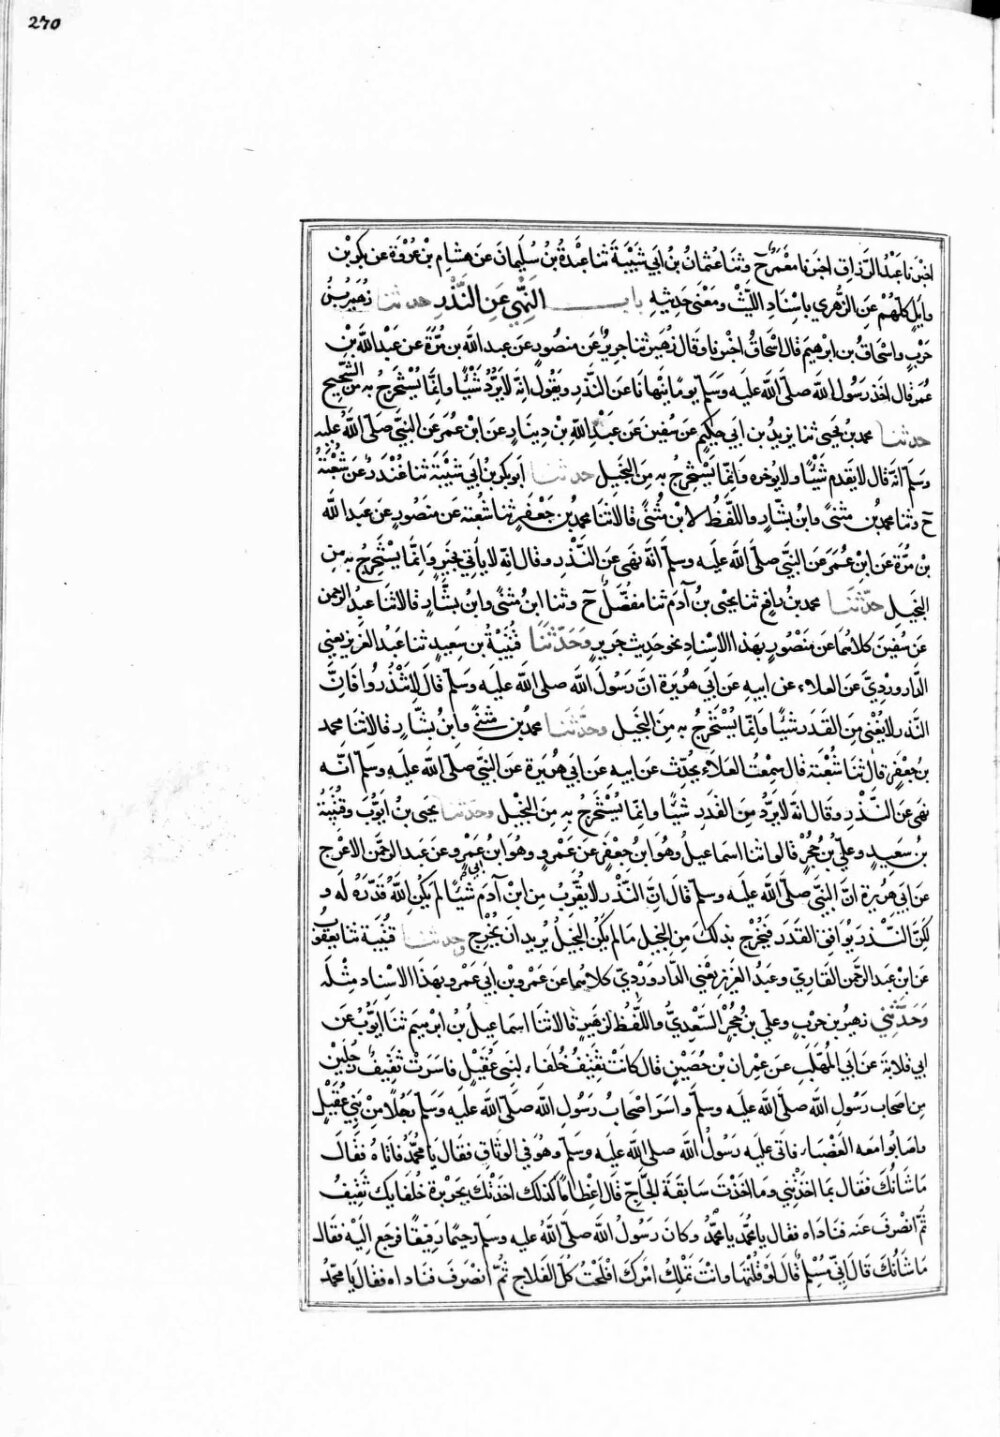 270
اخبرنا عَبْدُ الرَّزاق اخبرنا مَعْمَرٌ ح وثنا عُثمانُ بنُ ابي شَيْبَةَ ثنا عَبْدَةُ بنُ سُلَيمانَ عَن هِشامِ بْنِ عُرْوَةَ عن بَكْرِ بْنِ
وايلٍ كلّهُمْ عَنِ الزّهري باسْنَادِ اللَّيْثِ ومَعْنَى حَدِيثِهِ باب النَّهْيِ عَنِ النَّذْرِ حدثنا زُهَيرُ بنُ
حَرْبٍ واسْحَاقُ بن ابرهيمَ قالَ اسْحَاقُ اخْبرنا وقال زُهَيرٌ ثنا جريرٌ عَن منصُورٍ عَن عبد الله بن مُرَّةَ عن عَبْدِ الله بْنِ
عُمَر قال اخذ رَسُولُ الله صلى الله عليه وسَلم يومًا يَنْهانَا عَنِ النَّذرِ ويَقُول انّهُ لا يَرُدّ شَيْئًا وانّمَا يُسْتَخْرَجُ بِهِ مِنَ الشَّحِيحِ
حدثنا محمد بن يَحيى ثنا يزيدُ بن ابي حَكِيمٍ عَن سُفينَ عَن عَبْدِ الله بْنِ دِينارٍ عَنِ ابْنِ عُمَرَ عَنِ النّبيّ صَلّى اللهُ عليهِ
وسَلم انّهُ قال لا يقدم شَيْئًا ولا يُوخره وَانّمَا يُسْتَخرَجُ بِهِ مِنَ البَخيل حدثنا ابو بكرِ بنُ ابي شَيْبَةَ ثنا غُنْدَرٌ عَن شُعْبَةَ
ح وثنا محمد بنُ مثنىً وابنُ بشَّارٍ واللّفظُ لابْنِ مُثنىً قالا ثنا محمد بن جَعْفَرٍ ثنا شُعبَة عَن منصُورٍ عَن عبدِ اللهِ
بْنِ مُرّة عَنِ ابنِ عُمَرَ عَنِ النّبيّ صلى الله عليه وسلم انّهُ نهَى عَنِ النّذْرِ وقال انّه لا يَاتِي بخَيرٍ وَانّمَا يُسْتَخْرَجُ بِهِ مِنَ
البَخِيلِ حدّثنا محمد بن رَافِعٍ ثنا يحيى بن آدَمَ ثنا مفضّلٌ ح وثنا ابنُ مثنىً وابنُ بشَّارٍ قالا ثنا عبدُ الرحمن
عَن سُفين كلاهُمَا عَن مَنصُورٍ بهذا الاسنادِ نحوَ حديثِ جَريرٍ وَحَدّثنَا قُتَيْبةُ بن سَعِيدٍ ثنا عَبْدُ العَزيز يعني
الدّاروَرْدِيّ عَنِ العلاءِ عن ابيهِ عَن ابي هُرَيرَةَ انّ رَسُولَ الله صلى اللهُ عليهِ وسلم قالَ لا تَنْذُرُوا فَانّ
النَّذر لا يُغْنى مِنَ القَدَرِ شيئًا وَانّما يُسْتَخْرَجُ بِهِ مِنَ البَخيل وحدّثنا محمدُ بن مثنى وابنُ بشَّارٍ قالا ثنا محمد
بن جَعْفَرٍ قال ثنا شُعْبَة قال سَمِعْتُ العَلاءَ يحَدّث عَن ابيهِ عَن ابي هُرَيرة عَنِ النّبيّ صلّى الله عليهِ وسلم انّه
نهى عَنِ النّذرِ وقال انّهُ لا يَرُدّ مِنَ القَدَرِ شَيئًا وانّما يُسْتَخرَجُ بِهِ مِنَ البَخيْل وحَدّثنا يحيَى بنُ ايّوبَ وقُتَيبَةُ
بن سَعِيدٍ وعليّ بن حُجْرٍ قالوا ثنا اسماعيلُ وهُوَ ابن جَعْفَرٍ عَن عَمْرٍو وهُوَ ابن ابي عَمْرٍو عَن عبدِ الرّحمن الاعْرَج
عَن ابي هُرَيرة انّ النّبيّ صَلى الله عليهِ وسلم قالَ انّ النّذْرَ لا يُقَرّبُ مِن ابْنِ آدَمَ شَيْئًا لم يَكُنِ اللهُ قَدّرَهُ لَهُ و
لكِنّ النّذرَ يُوَافِقُ القَدَرَ فيَخْرُجُ بذلكَ مِنَ البخيل مَا لم يكُنِ البَخيلُ يُريد ان يُخْرِجَ وحدثنا قُتَيْبَة ثنا يَعْقُوبُ
عَن ابن عبد الرحمن القارِيّ وعبدُ العَزيز يَعْني الدّاروَرْديّ كلاهُما عَن عَمْرو بن ابي عَمْرٍو بهَذَا الاسْناد مثْلَهُ
وَحَدّثَنِي زهيرُ بن حَربٍ وعليّ بنُ حُجْرٍ السّعْدِيّ واللّفظُ لزُهَيرٍ قالا ثنا اسماعيلُ بن ابرهيم ثنا ايّوبُ عَن
ابي قلابَة عَن ابي المُهَلّبِ عَن عِمرانَ بن حُصَيْنٍ قال كَانَتْ ثقِيفُ حُلفَاءَ لِبَنِي عُقَيْلٍ فاسَرَتْ ثَقِيفُ رَجُلَيْنِ
مِن اصْحاب رَسُولِ الله صلى الله عليهِ وسلم واسَرَ اصْحَابُ رَسُولِ الله صلى الله عليه وسلم رَجُلًا مِنْ بَنِي عُقَيْلٍ
واصَابُوا مَعَه العَضْباءَ فاتى عليه رَسُولُ الله صلى الله عليهِ وسلم وهُوَ في الوَثاقِ فقال يا مُحَمّدُ فاتَاهُ فَقَالَ
مَا شَانُكَ فقال بِمَا اخَذْتَنِي وَمَا اخَذْتَ سَابقَةَ الحَاجّ قالَ اعْظامًا لذلك اخَذْتُكَ بجَريرَةِ حُلفايكَ ثَقِيفَ
ثُمّ انْصَرَفَ عَنه فنَادَاهُ فقال يا مُحمّد يا محمّدُ وكان رَسُولُ الله صلى اللهُ عليهِ وسلم رَحيمًا رَفِيقًا فرَجَع الَيْهِ فقال
مَا شَانُكَ قال انّي مُسْلِمٌ قالَ لَوْ قلْتَهَا وانْتَ تَمْلِكُ امْرَكَ افْلَحْتَ كُلَّ الفَلَاح ثُمّ انْصَرَفَ فنَادَاهُ فقال يا محمّدُ